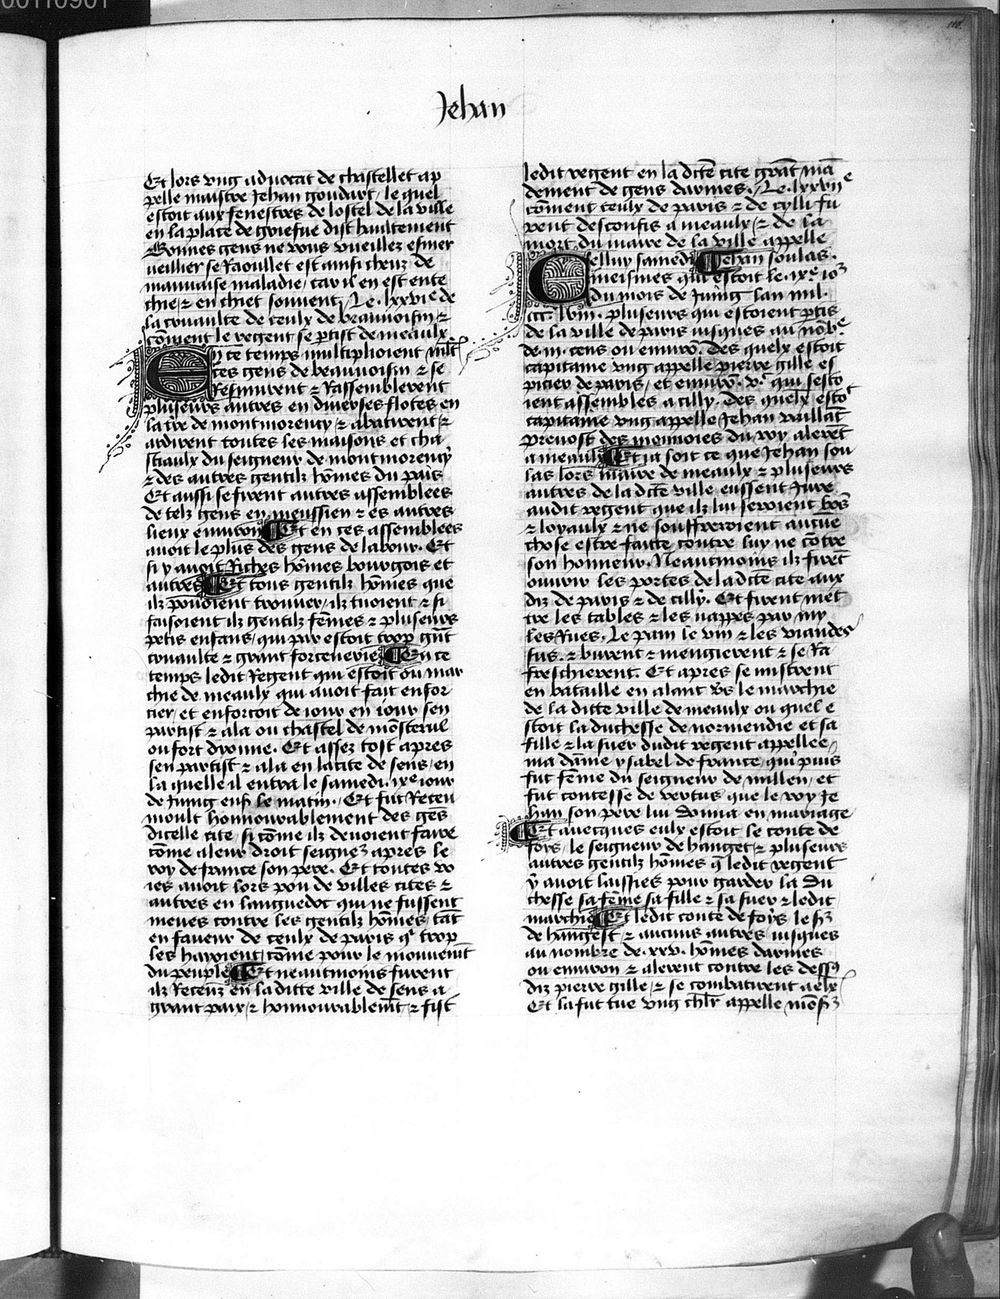 00110901
110
Jehan
Et lors vng aduocat de chastellet ap
pelle maistre Jehan goudart / le quel
estoit aux fenestres de lostel de la ville
en la place de grieфue dist haultement
Bonnes gens ne vous vueillez esmer
ueillier se Raoullet est ainsi cheuz de
mauuaise maladie / car il en est ente
chie / ⁊ en chiet souuent / Le .lxxvie de
la cruaulte de ceulx de beauuoisin / ⁊
cōment le regent se ptist de meaulx
En ce temps multiplioient mlt
ces gens de beauuoisin ⁊ se
Resmurent ⁊ Rassemblerent
pluseurs autres en diuerses flotes en
la tre de montmorency ⁊ abatirent ⁊
ardirent toutes les maisons et cha
steaulx du seigneur de montmorency
⁊ des autres gentilz hōmes du pais
Et aussi se firent autres assemblees
de telz gens en meussien ⁊ es autres
lieux enuiron Et en ces assemblees
auoit le plus des gens de labour. Et
si y auoit Riches hōmes bourgois et
autres Et tous gentilz hōmes que
ilz pouoient trouuer / ilz tuoient ⁊ si
faisoient ilz gentilz fēmes ⁊ pluseurs
petis enfans / qui par estoit trop gāt
cruaulte ⁊ grant forcenerie En ce
temps ledit Regent qui estoit ou mar
chie de meaulx qui auoit fait enfor
cier / et enforcoit de iour en iour sen
partist ⁊ ala ou chastel de mōsterul
ou fort dyonne. Et assez tost apres
sen partist ⁊ ala en la cite de sens / en
la quelle il entra le samedi .ixe iour
de Juing ens le matin. Et fut Receu
moult honnourablement des gēs
dicelle cite / si cōme ilz deuoient faire
cōme a leur droit seigneur apres le
roy de france son pere. Et toutes vo
ies auoit lors pou de villes cites ⁊
autres en languedoc qui ne fussent
meues contre les gentilz hōmes tāt
en faueur de ceulx de paris qi trop
les hayoient / cōme pour le mouuemt
du peuple Et neantmoins furent
ilz Receuz en la ditte ville de sens a
grant paix / ⁊ honnourablemt / ⁊ fist
ledit regent en la dcte cite grāt mā
dement de gens darmes. Le .lxxviie
cōment ceulx de paris ⁊ de cylli fu
rent desconfis a meaulx / ⁊ de la
mort du maire de la ville appelle
Jehan soulas.
Celluy samedi
meismes qui estoit le .ixe io
du mois de Juing lan mil.
ccc. lviii. pluseurs qui estoient ptis
de la ville de paris iusques au nōbe
de iiic cens ou enuirō. Des quelx estoit
capitaine vng appelle pierre gille es
picier de paris / et enuirō .vc qui sesto
ient assembles a cilly. des quelx esto
capitaine vng appelle Jehan vaillāt
preuost des monnoies du roy alerēt
a meaulx Et ia soit ce que Jehan sou
las lors maire de meaulx ⁊ pluseurs
autres de la dcte ville eussent Jure
audit regent que ilz lui seroient bōs
⁊ loyaulx ⁊ ne souffreroient aucūe
chose estre faitte contre luy ne cōtre
son honneur. Neantmoins ilz firēt
ouurir les portes de la dcte cite aux
diz de paris ⁊ de cilly. Et firent met
tre les tables ⁊ les nappes par my
les Rues. Le pain le vin ⁊ les viandes
sus. ⁊ burent ⁊ mengierent ⁊ se Ra
freschierent. Et apres se mistrent
en bataille en alant vs le marchie
de la ditte ville de meaulx ou quel e
stoit la duchesse de normendie et sa
fille ⁊ la suer dudit regent appellee
ma dame ysabel de france / qui puis
fut fēme du seigneur de millen / et
fut contesse de vertus que le roy Je
han son pere lui donna en mariage
Et auecques eulx estoit le conte de
foys / le seigneur de hangest ⁊ pluseurs
autres gentilz hōmes q̄ ledit regent
y auoit laissies pour garder la du
chesse sa fēme sa fille ⁊ sa suer ⁊ ledit
marchie Et ledit conte de foys le sr
de hangest ⁊ aucuns autres iusques
au nombre de .xxv. hōmes darmes
ou enuiron ⁊ alerent contre les dess
diz pierre gille / ⁊ se combatirent a eulx
Et la fut tue vng chlr appelle mōsr